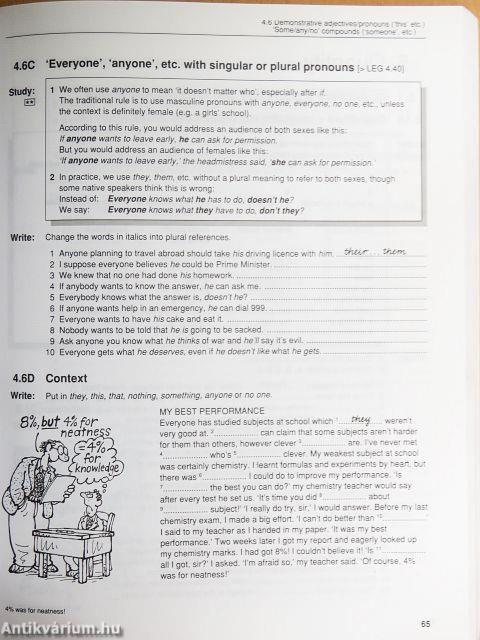 4.6 Demonstrative adjectives/pronouns ('this' etc.)
'Some/any/no' compounds ('someone', etc.)
4.6C 'Everyone', 'anyone', etc. with singular or plural pronouns [> LEG 4.40]
Study:
**
1 We often use anyone to mean 'it doesn't matter who', especially after if.
The traditional rule is to use masculine pronouns with anyone, everyone, no one, etc., unless
the context is definitely female (e.g. a girls' school).
According to this rule, you would address an audience of both sexes like this:
If anyone wants to leave early, he can ask for permission.
But you would address an audience of females like this:
'If anyone wants to leave early,' the headmistress said, 'she can ask for permission.'
2 In practice, we use they, them, etc. without a plural meaning to refer to both sexes, though
some native speakers think this is wrong:
Instead of: Everyone knows what he has to do, doesn't he?
We say: Everyone knows what they have to do, don't they?
Write: Change the words in italics into plural references.
1 Anyone planning to travel abroad should take his driving licence with him. their ... them
2 I suppose everyone believes he could be Prime Minister.
3 We knew that no one had done his homework.
4 If anybody wants to know the answer, he can ask me.
5 Everybody knows what the answer is, doesn't he?
6 If anyone wants help in an emergency, he can dial 999.
7 Everyone wants to have his cake and eat it.
8 Nobody wants to be told that he is going to be sacked.
9 Ask anyone you know what he thinks of war and he'll say it's evil.
10 Everyone gets what he deserves, even if he doesn't like what he gets.
4.6D Context
Write: Put in they, this, that, nothing, something, anyone or no one.
8%, but 4% for
neatness
=4%
for
knowledge
MY BEST PERFORMANCE
Everyone has studied subjects at school which 1 they weren't
very good at. 2 can claim that some subjects aren't harder
for them than others, however clever 3 are. I've never met
4 who's 5 clever. My weakest subject at school
was certainly chemistry. I learnt formulas and experiments by heart, but
there was 6 I could do to improve my performance. 'Is
7 the best you can do?' my chemistry teacher would say
after every test he set us. 'It's time you did 8 about
9 subject!' 'I really do try, sir,' I would answer. Before my last
chemistry exam, I made a big effort. 'I can't do better than 10
I said to my teacher as I handed in my paper. 'It was my best
performance.' Two weeks later I got my report and eagerly looked up
my chemistry marks. I had got 8%! I couldn't believe it! 'Is 11
all I got, sir?' I asked. 'I'm afraid so,' my teacher said. 'Of course, 4%
was for neatness!'
4% was for neatness!
65
Antikvárium.hu